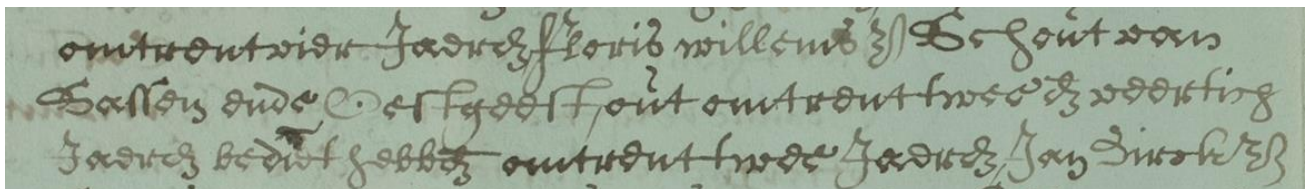 omtrent vier Jaeren, floris willems z Schout van
Sassen ende Oestgeest, out omtrent twee en veertich
Jaeren bedient hebben omtrent twee Jaeren, Jan Dirck z